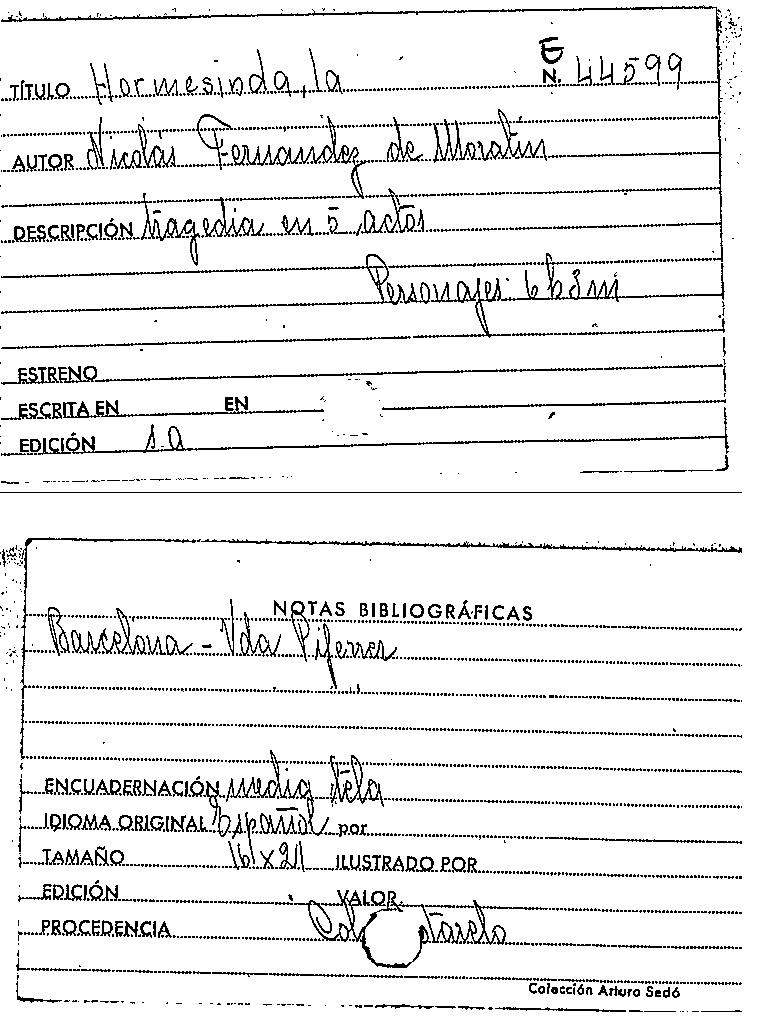 TÍTULO Hormesinda, la N. 44599
AUTOR Nicolás Fernandez de Moratín
DESCRIPCIÓN tragedia en 5 actos
Personajes: 6 h 3 m
ESTRENO
ESCRITA EN EN
EDICIÓN s.a
NOTAS BIBLIOGRÁFICAS
Barcelona - Vda Piferrer
ENCUADERNACIÓN media tela
IDIOMA ORIGINAL Español por
TAMAÑO 16 x 21 ILUSTRADO POR
EDICIÓN VALOR
PROCEDENCIA Col tarelo
Colección Arturo Sedó